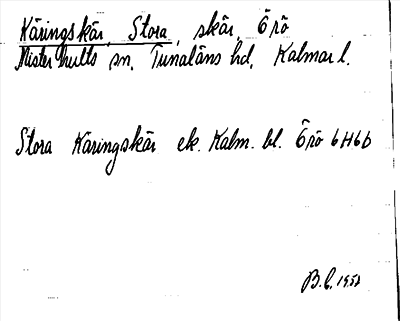 Käringskär, Stora, skär, Örö
Misterhults sn, Tunaläns hd, Kalmar l.
Stora Käringskär ek. Kalm. bl. Örö 6H6b
B.C. 1952